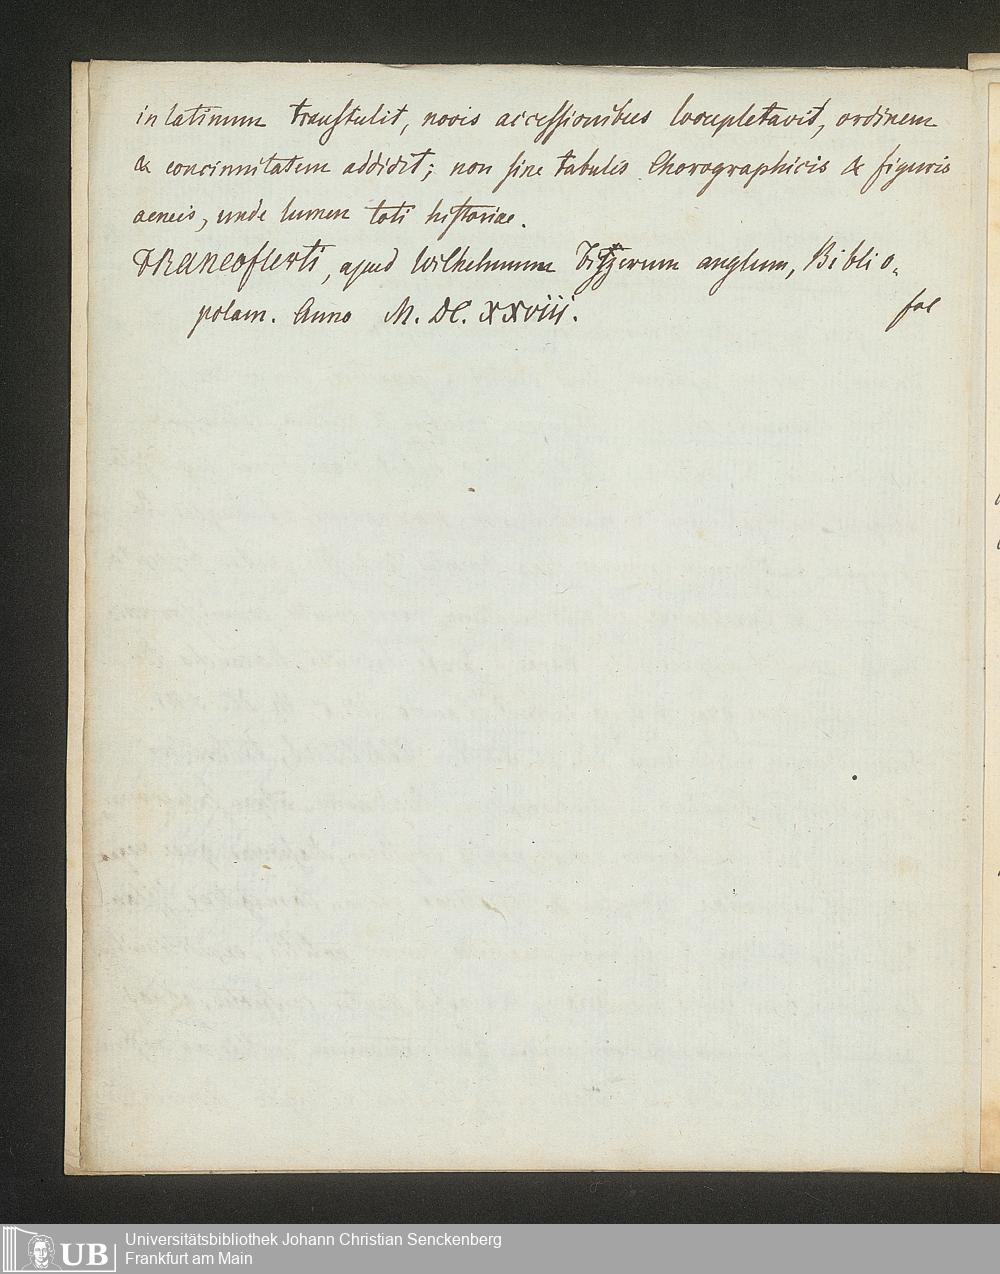 in latinum transtulit, novis accessionibus locupletavit, ordinem
& concinnitatem addidit; non sine tabulis Chorographicis & figuris
aeneis, unde lumen toti historiae.
FRancofurti, apud Wilhelmum Fitzerum anglum, Biblio„
polam. Anno M. DC. XXViii.
fol
UB
Universitätsbibliothek Johann Christian Senckenberg
Frankfurt am Main